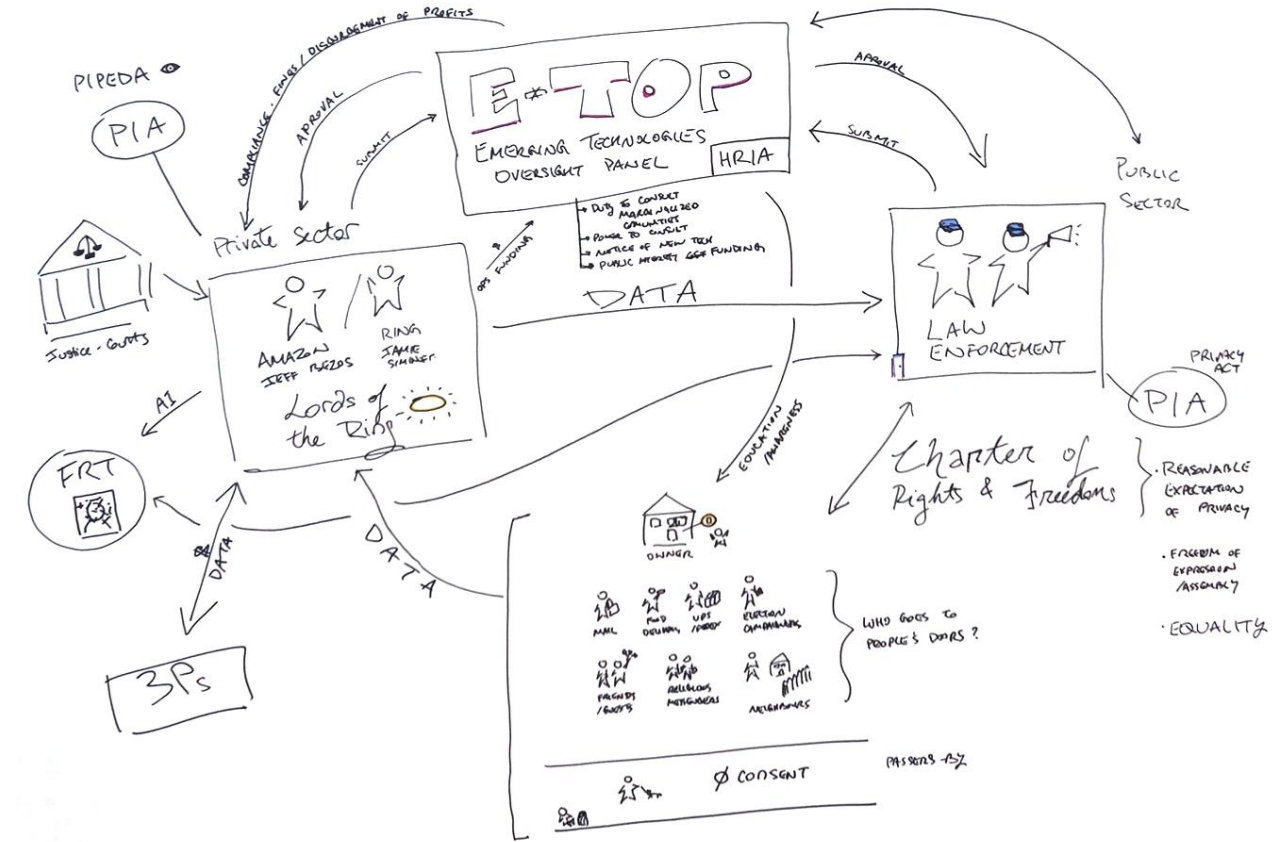 COMPLIANCE · FINES / DISGORGEMENT OF PROFITS
PIPEDA
PIA
APPROVAL
SUBMIT
E-TOP
EMERGING TECHNOLOGIES
OVERSIGHT PANEL
HRIA
APPROVAL
SUBMIT
PUBLIC
SECTOR
→ DUTY TO CONSULT
MARGINALIZED
COMMUNITIES
→ POWER TO CONSULT
→ NOTICE OF NEW TECH
→ PUBLIC INTEREST FUNDING
OPS FUNDING
$
Private Sector
Justice - Courts
AMAZON
JEFF BEZOS
RING
JAMIE
Lords of
the Ring
DATA
LAW
ENFORCEMENT
PRIVACY
ACT
PIA
AI
FRT
DATA
3Ps
DATA
EDUCATION
/AWARENESS
Chapter of
Rights & Freedoms
· REASONABLE
EXPECTATION
OF PRIVACY
· FREEDOM OF
EXPRESSION
/ASSEMBLY
· EQUALITY
OWNER
MAIL
FOOD
DELIVERY
UPS
/FEDEX
ELECTION
CAMPAIGNERS
WHO GOES TO
PEOPLE'S DOORS?
FRIENDS
/GUESTS
RELIGIOUS
MESSENGERS
NEIGHBOURS
PASSERS-BY
Ø CONSENT